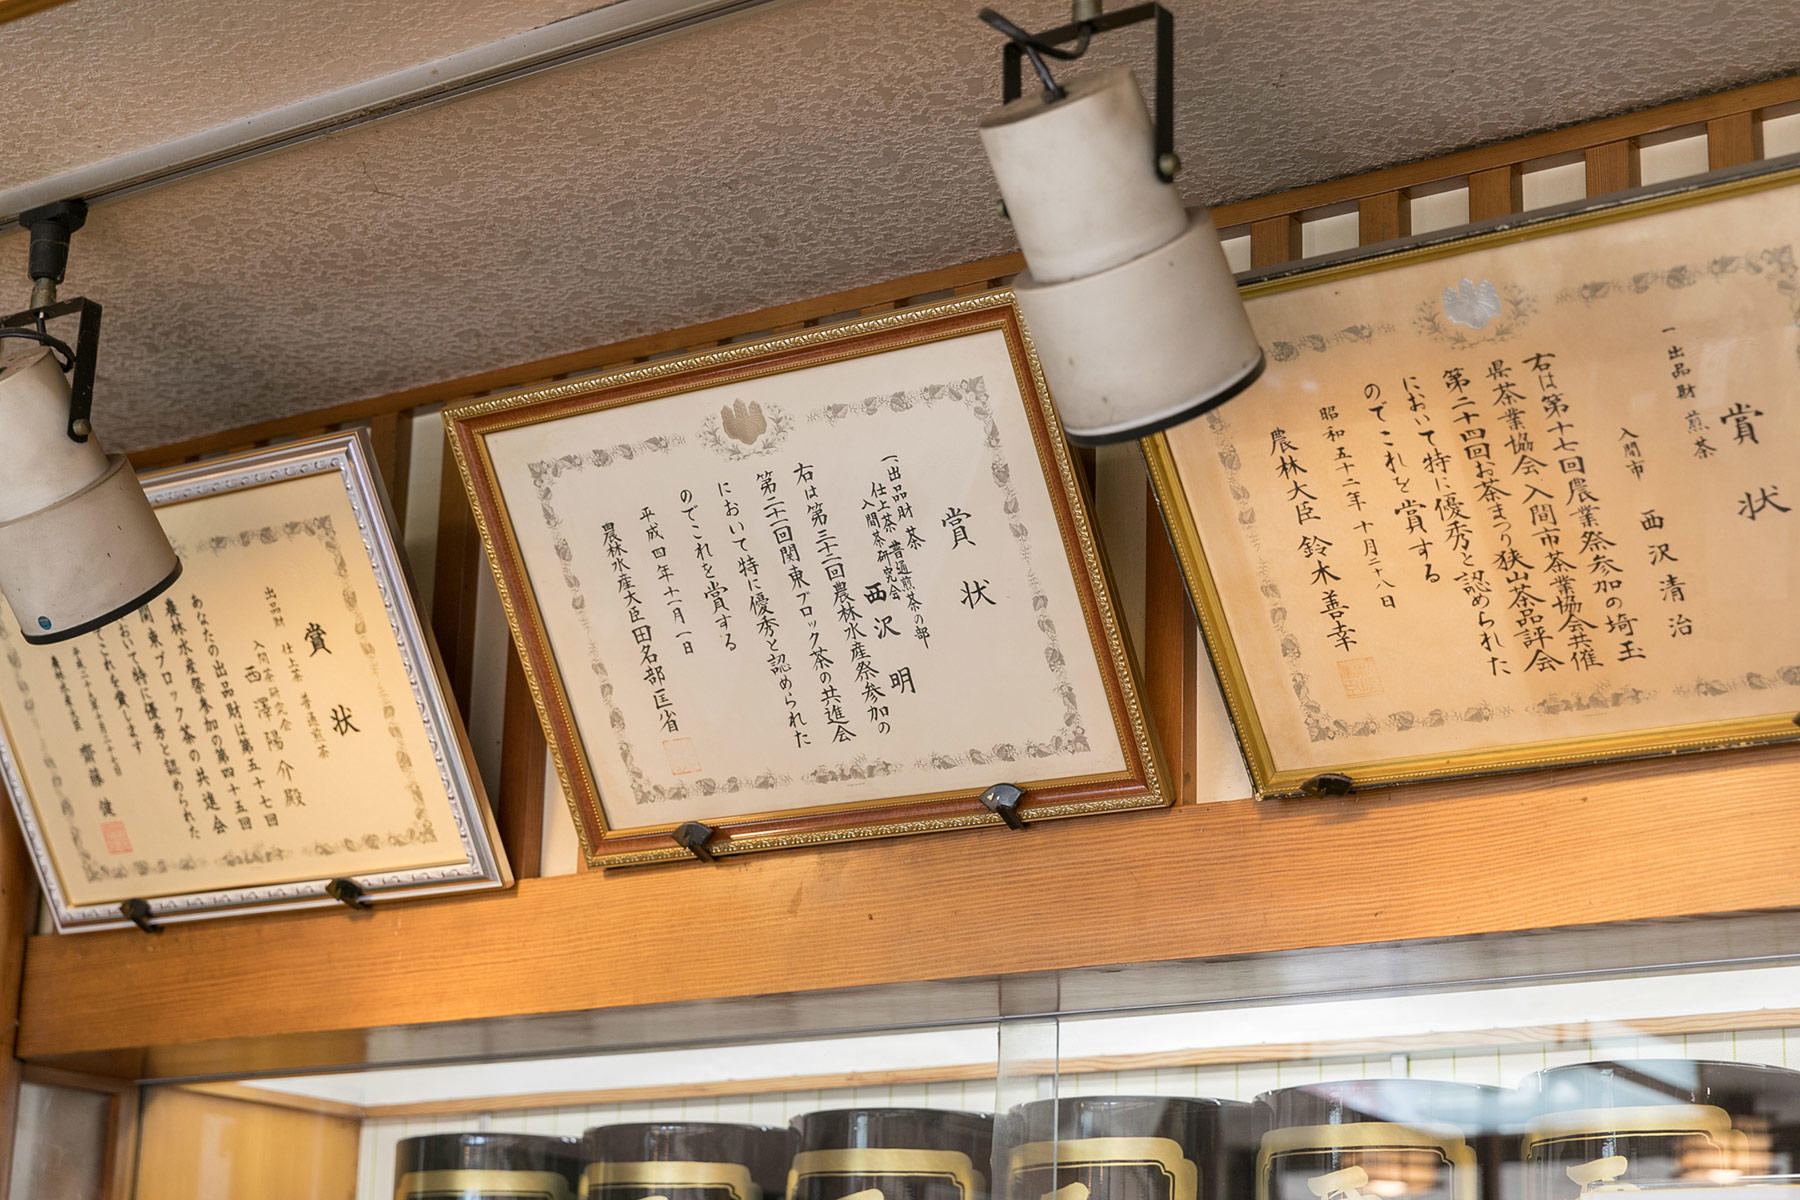 賞状
一出品財 煎茶
入間市 西沢清治
右は第十七回農業祭参加の埼玉
県茶業協会、入間市茶業協会共催
第二十四回お茶まつり狭山茶品評会
において特に優秀と認められた
のでこれを賞する
昭和五十二年十月二十八日
農林大臣 鈴木善幸
賞状
一、出品財 茶
仕上茶 普通煎茶の部
入間茶研究会
西沢 明
右は第三十二回農林水産祭参加の
第二十一回関東ブロック茶の共進会
において特に優秀と認められた
のでこれを賞する
平成四年十一月一日
農林水産大臣 田名部匡省
賞状
出品財 仕上茶 普通煎茶
入間茶研究会
西澤陽介殿
あなたの出品財は第五十七回
農林水産祭参加の第四十五回
関東ブロック茶の共進会
おいて特に優秀と認められた
でこれを賞します
平成三十年十月二十七日
農林水産大臣 齋藤健